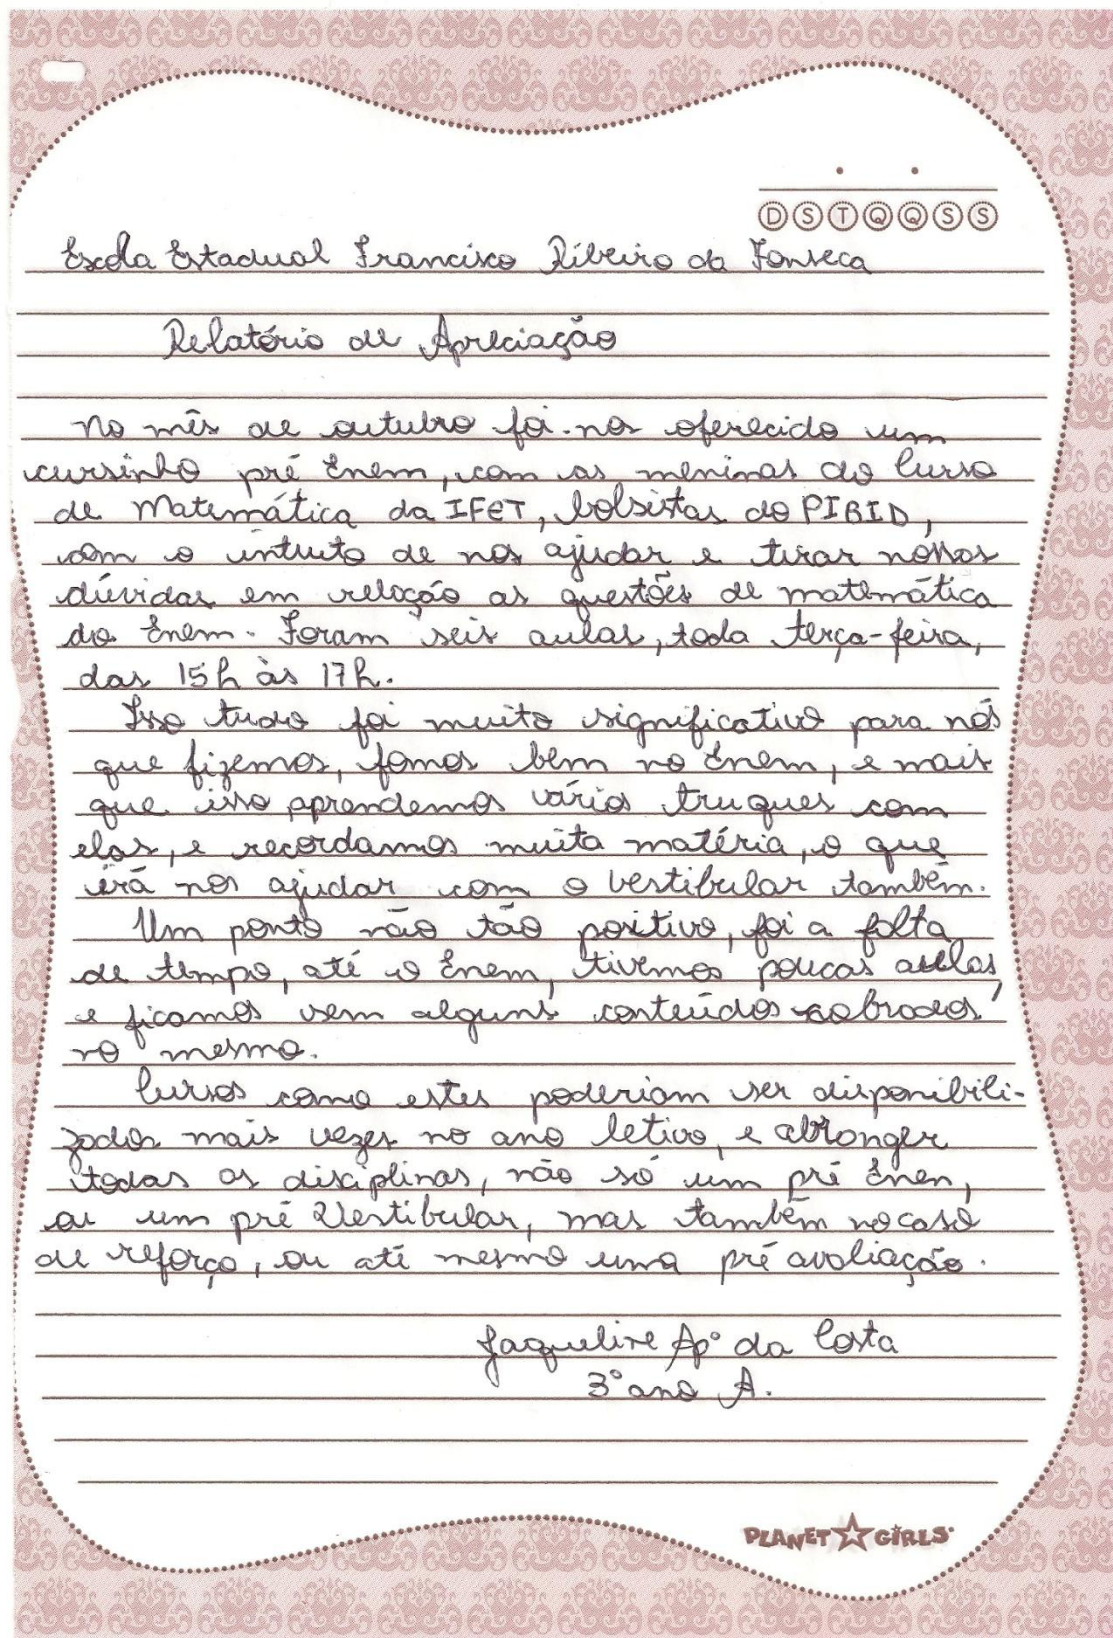 D S T Q Q S S
Escola Estadual Francisco Ribeiro da Fonseca
Relatório de Apreciação
No mês de outubro foi-nos oferecido um
cursinho pré Enem, com as meninas do Curso
de Matemática da IFET, bolsistas do PIBID,
com o intuito de nos ajudar e tirar nossas
dúvidas em relação as questões de matemática
do Enem. Foram seis aulas, toda terça-feira,
das 15h às 17h.
Isso tudo foi muito significativo para nós
que fizemos, fomos bem no Enem, e mais
que isso aprendemos vários truques com
elas, e recordamos muita matéria, o que
irá nos ajudar com o vestibular também.
Um ponto não tão positivo, foi a falta
de tempo, até o Enem, tivemos poucas aulas,
e ficamos sem alguns conteúdos cobrados
no mesmo.
Cursos como estes poderiam ser disponibili-
zados mais vezes no ano letivo, e abranger
todas as disciplinas, não só um pré Enen,
ou um pré Vestibular, mas também no caso
de reforço, ou até mesmo uma pré avaliação.
Jaqueline Apª da Costa
3º ano A.
PLANET GIRLS